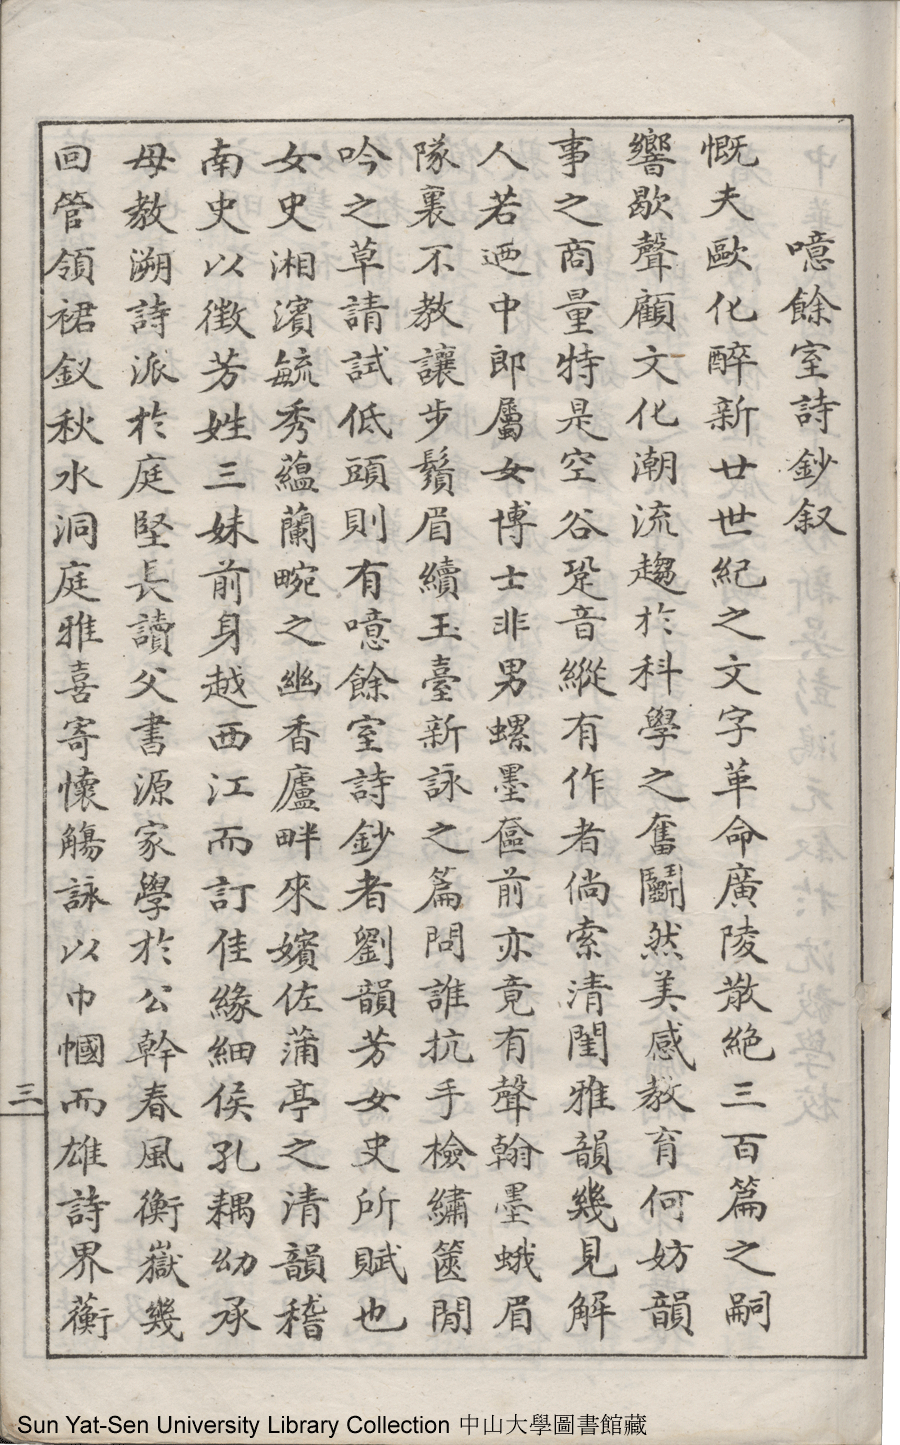 噫餘室詩鈔叙
慨夫歐化醉新廿世紀之文字革命廣陵散絕三百篇之嗣
響歇聲顧文化潮流趨於科學之奮鬭然美感教育何妨韻
事之商量特是空谷跫音縱有作者倘索清閨雅韻幾見解
人若迺中郎屬女博士非男螺墨奩前亦竟有聲翰墨蛾眉
隊裏不教讓步鬚眉續玉臺新詠之篇問誰抗手檢繡篋閒
吟之草請試低頭則有噫餘室詩鈔者劉韻芳女史所賦也
女史湘濱毓秀蘊蘭畹之幽香廬畔來嬪佐蒲亭之清韻稽
南史以徵芳姓三妹前身越西江而訂佳緣細侯孔耦幼承
母教溯詩派於庭堅長讀父書源家學於公幹春風衡嶽幾
回管領裙釵秋水洞庭雅喜寄懷觴詠以巾幗而雄詩界蘅
三
Sun Yat-Sen University Library Collection 中山大學圖書館藏